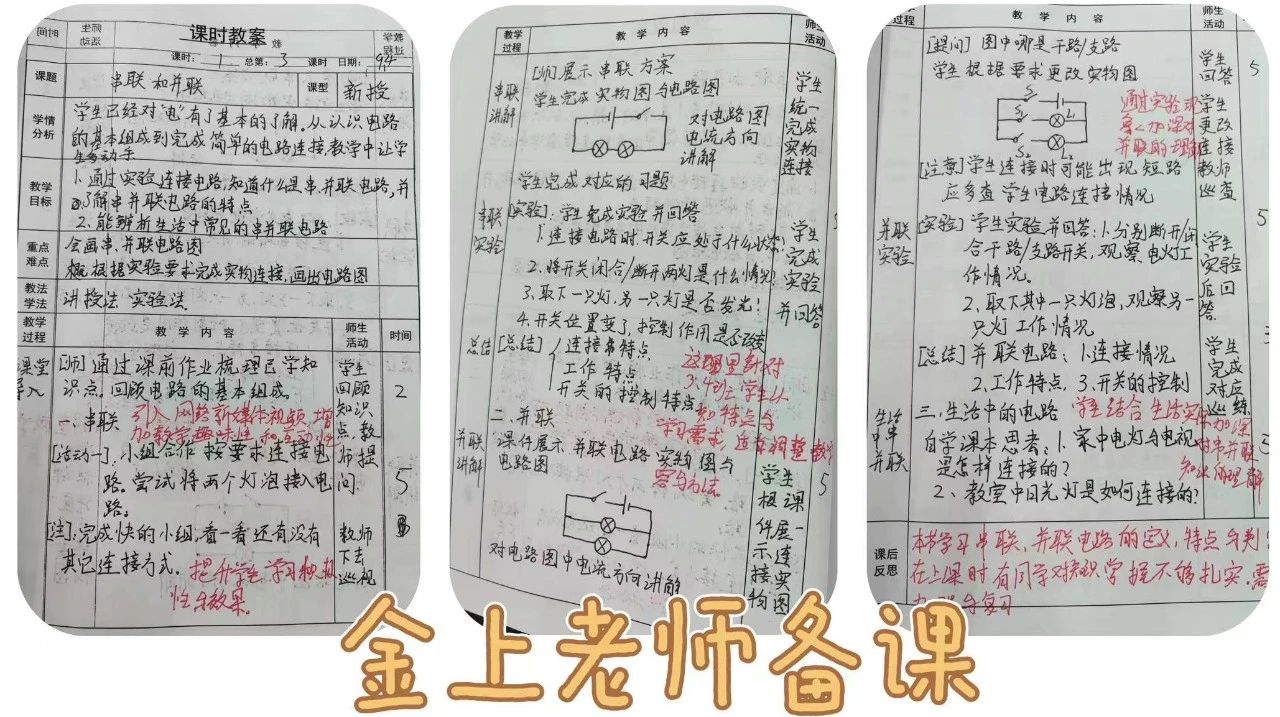 课时教案
课时: 1 总第: 3 课时 日期: 9.4
课题 串联和并联 课型 新授
学情分析
学生已经对"电"有了基本的了解。从认识电路
的基本组成到完成简单的电路连接,教学中让学
生多动手
教学目标
1. 通过实验连接电路,知道什么是串、并联电路,并
了解串并联电路的特点
2. 能辨析生活中常见的串并联电路
重点难点
会画串、并联电路图
根据实验要求完成实物连接,画出电路图
教法学法
讲授法 实验法
教学过程 教学内容 师生活动 时间
课堂导入
[师]通过课前作业梳理已学知
识点。回顾电路的基本组成。
学生回顾知识点,教师提问
2
一、串联
引入网络新媒体视频,增
加教学趣味性和互动性
[活动一]:小组合作 按要求连接电
路。尝试将两个灯泡接入电
路。
5
[注]:完成快的小组,看一看还有没有
其它连接方式。
提升学生学习积极
性与效果。
教师下去巡视
教学过程 教学内容 师生活动
串联讲解
[师]展示串联方案
学生完成实物图与电路图
对电路图
电流方向
讲解
学生统一完成实物连接
学生完成对应的习题
串联实验
[实验]:学生完成实验并回答
1. 连接电路时,开关应处于什么状态?
2. 将开关闭合/断开两灯是什么情况?
3. 取下一只灯,另一只灯是否发光?
4. 开关位置变了,控制作用是否改变
学生完成实验并回答
5
总结
[总结]
连接特点
工作特点
开关的控制特点
这里针对
3.4到
学生认
知特点与
学习需求,适当调整教学
内容与方法。
二、并联
并联讲解
课件展示并联电路 实物图与
电路图
学生根课件展示连接实物图
一
5
对电路图中电流方向讲解
过程 教学内容 师生活动
[提问] 图中哪是干路/支路
学生回答
5
学生根据要求更改实物图
S
S₁
L₁
S₂
L₂
通过实验现
象加深对
并联的理解
学生更改连接
教师巡查
[注意]学生连接时可能出现短路
应多查学生电路连接情况
并联实验
[实验]学生实验并回答:1. 分别断开/闭
合干路/支路开关,观察电灯工
作情况。
2. 取下其中一只灯泡,观察另一
只灯工作情况
学生实验后回答
5
[总结]并联电路:1. 连接情况
2. 工作特点 3. 开关的控制
学生完成对应巡练
3
生活中串并联
三、生活中的电路
学生结合生活实际加深
对串并联
知识的理解
自学课本思考:1. 家中电灯与电视
是怎样连接的?
2、教室中日光灯是如何连接的?
课后反思
本节学习串联、并联电路的定义,特点与判
在上课时有同学对知识掌握不够扎实,需
复习
金上老师备课